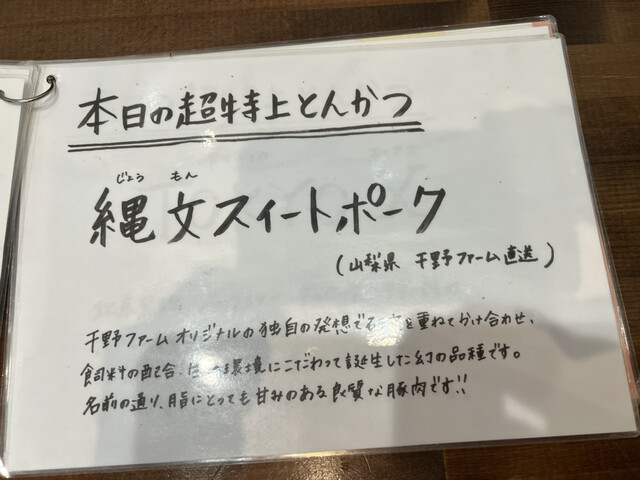 本日の超特上とんかつ
じょう もん
縄文スイートポーク
(山梨県 千野ファーム直送)
千野ファームオリジナルの独自の発想で を重ねてかけ合わせ、
飼料の配合、 環境にこだわって誕生した幻の品種です。
名前の通り、脂にとっても甘みのある良質な豚肉です!!